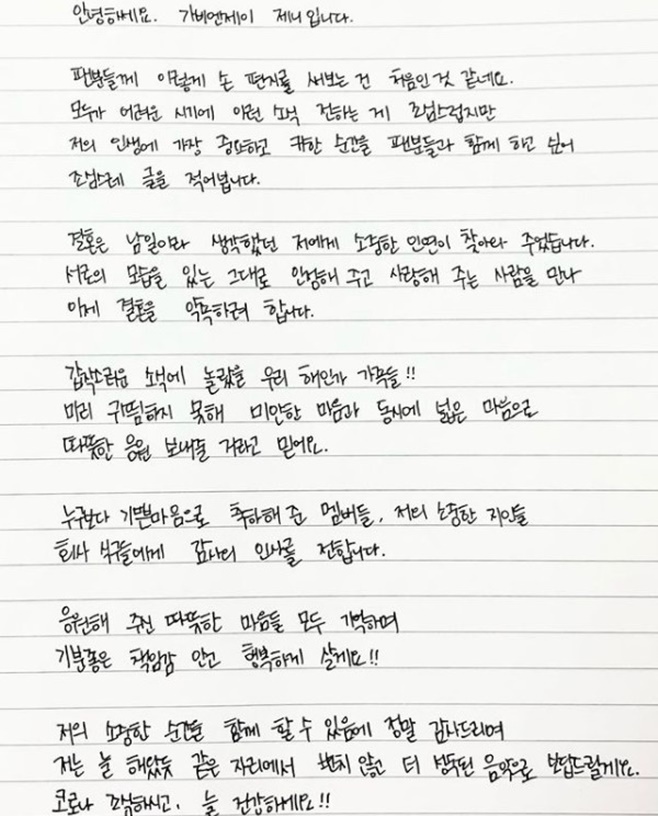 안녕하세요. 가비엔제이 제니입니다.
팬분들께 이렇게 손 편지를 써보는 건 처음인 것 같네요.
모두가 어려운 시기에 이런 소식 전하는 게 조심스럽지만
저의 인생에 가장 중요하고 귀한 순간을 팬분들과 함께 하고 싶어
조심스레 글을 적어봅니다.
결혼은 남일이라 생각했던 저에게 소중한 인연이 찾아와 주었습니다.
서로의 모습을 있는 그대로 인정해 주고 사랑해 주는 사람을 만나
이제 결혼을 약속하려 합니다.
갑작스러운 소식에 놀랐을 우리 해인가 가족들!!
미리 귀띔하지 못해 미안한 마음과 동시에 넓은 마음으로
따뜻한 응원 보내줄 거라고 믿어요.
누구보다 기쁜마음으로 축하해 준 멤버들, 저의 소중한 지인들
회사 식구들에게 감사의 인사를 전합니다.
응원해 주신 따뜻한 마음들 모두 기억하며
기분좋은 책임감 안고 행복하게 살게요!!
저의 소중한 순간을 함께 할 수 있음에 정말 감사드리며
저는 늘 해왔듯 같은 자리에서 변치 않고 더 성숙된 음악으로 보답드릴게요.
코로나 조심하시고, 늘 건강하세요!!